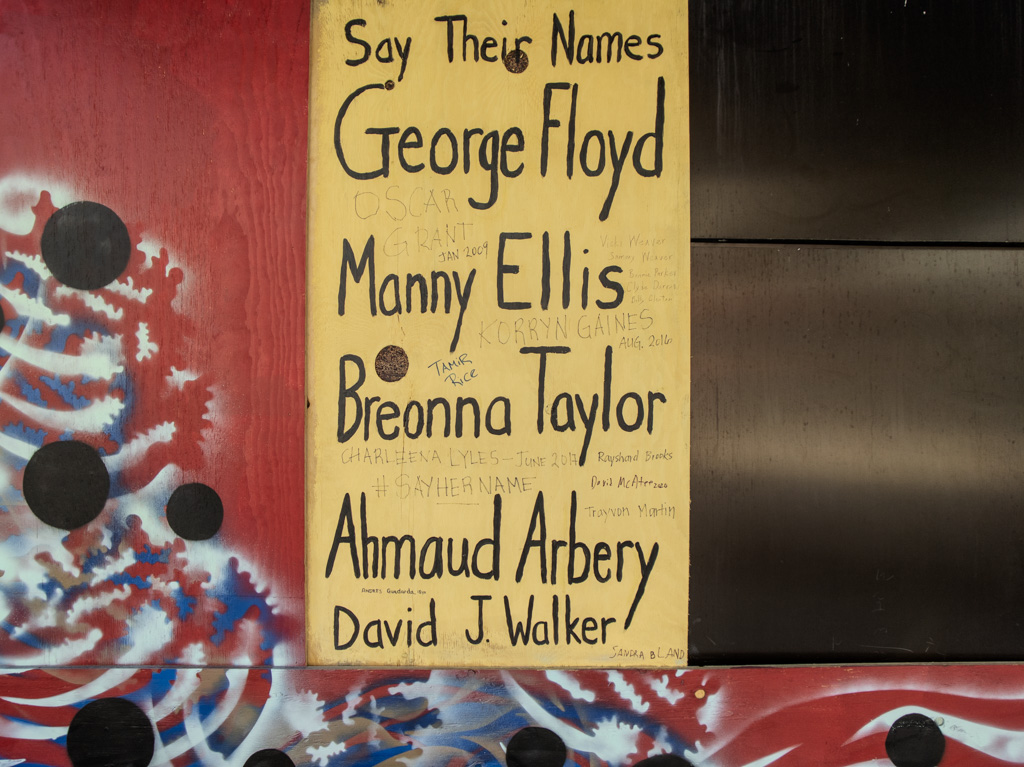 Say Their Names
George Floyd
OSCAR
GRANT
JAN 2009
Manny Ellis
Vicki Weaver
Sammy Weaver
KORRYN GAINES
AUG, 2016
TAMIR
RICE
Breonna Taylor
CHARLEENA LYLES - JUNE 2017
# SAYHERNAME
Rayshard Brooks
David McAtee 2020
Trayvon Martin
Ahmaud Arbery
ANDRES Guardardo,
David J. Walker
SANDRA BLAND